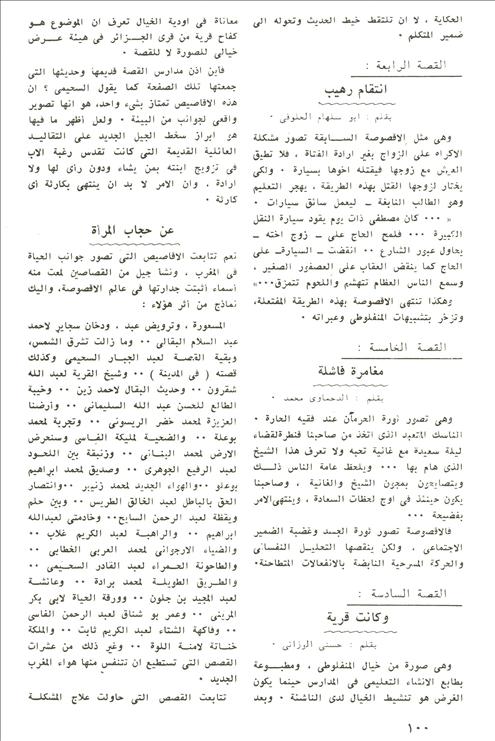 الحكاية ، لا ان تلتقط خيط الحديث وتحوله الى
ضمير المتكلم ·
القصة الرابعة :
انتقام رهيب
بقلم : ابو سلهام العلوفي ·
وهى مثل الاقصوصة السابقة تصور مشكلة
الاكراه على الزواج بغير ارادة الفتاة ، فلا تطيق
العيش مع زوجها فيقتله اخوها بسيارة · ولكى
يختار لزوجها القتل بهذه الطريقة ، يهجر التعليم
وهو الطالب النابغة – ليعمل سائق سيارات ·
« ··· كان مصطفى ذات يوم يقود سيارة النقل
الكبيرة ··· فلمح الحاج على – زوج اخته –
يحاول عبور الشارع ·· انقضت – السيارة – على
الحاج كما ينقض العقاب على العصفور الصغير ،
وسمع الناس العظام تتهشم واللحوم تتمزق···»
وهكذا تنتهى الاقصوصة بهذه الطريقة المفتعلة،
وتزخر بتشبيهات المنفلوطى وعبراته ·
القصة الخامسة :
مغامرة فاشلة
بقلم : الدحماوى محمد ·
وهى تصور ثورة الحرمان عند فقيه الحارة ·
الناسك المتعبد الذى اتخذ من صاحبنا قنطرة لقضاء
ليلة سعيدة مع غانية تعبه ولا تعرف هذا الشيخ
الذى هام بها ··· ويلحظ عامة الناس ذلك
ويتصايحون بمجون الشيخ والغانية ، وصاحبنا
يكون حينئذ فى اوج لحظات السعادة ، وينتهى الامر
بفضيحة ···
فالاقصوصة تصور ثورة الجسد وغضبة الضمير
الاجتماعى ، ولكن ينقصها التعليل النفسانى
والحركة المسرحية النابضة بالانفعالات المتطاحنة·
القصة السادسة :
وكانت قرية
بقلم : حسنى الوزانى ·
وهى صورة من خيال المنفلوطى ، ومطبوعة
بطابع الانشاء التعليمى فى المدارس حينما يكون
الغرض هو تنشيط الخيال لدى الناشئة · وبعد
معاناة فى اودية الخيال تعرف ان الموضوع هو
كفاح قرية من قرى الجزائر فى هيئة عرض
خيالى للصورة لا للقصة ·
فأين اذن مدارس القصة قديمها وحديثها التى
جمعتها تلك الصفعة كما يقول السحيمى ؟ ان
هذه الاقاصيص تمتاز بشىء واحد، هو انها تصوير
واقعى لجوانب من البيئة · ولعل اظهر ما فيها
هو ابراز سخط الجيل الجديد على التقاليد
العائلية القديمة التى كانت تقدس رغبة الاب
فى تزويج ابنته بمن يشاء ودون رأى لها ولا
ارادة · وان الامر لا بد ان ينتهى بكارثة أى
كارثة ·
عن حجاب المرأة
نعم تتابعت الاقاصيص التى تصور جوانب الحياة
فى المغرب ، ونشأ جيل من القصاصين لمعت منه
أسماء أثبتت جدارتها فى عالم الاقصوصة، واليك
نماذج من أثر هؤلاء :
المسعورة ، وترويض عبد ، ودخان سجاير لاحمد
عبد السلام البقالى ·· وما زالت تشرق الشمس،
وبقية القصة لعبد الجبار السحيمى وكذلك
قصته ( فى المدينة ) ·· وشيخ القرية لعبد الله
شقرون ·· وحديث البقال لاحمد زين ·· وخيبة
الطالع للحسن عبد الله السليمانى ·· وأرضنا
العزيزة لمحمد خضر الريسونى ·· وتجربة لمحمد
بوعلة ·· والضحية لمليكة الفاسى وسنعرض
الارض لمحمد البنانى ·· وزنبقة بين اللحود
لعبد الرفيع الجوهرى ·· وصديق لمحمد ابراهيم
بوعلو ··والهواء الجديد لمحمد زنيبر ··وانتصار
الحق بالباطل لعبد الخالق الطريس ·· وبين حلم
ويقظة لعبد الرحمن السايح·· وخادمتى لعبدالله
ابراهيم ·· والراهبة لعبد الكريم غلاب ··
والضياء الارجوانى لمحمد العربى الخطابى ··
والطاحونة الحمراء لعبد القادر السحيمى ··
والطريق الطويلة لمحمد برادة ·· وعائشة
لعبد المجيد بن جلون ·· وورقة الحياة لابى بكر
المرينى ·· وعمر بو شناق لعبد الرحمن الفاسى
·· وفاكهة الشتاء لعبد الكريم ثابت ·· والملكة
خناتة لامنة اللوة ·· وغير ذلك من عشرات
القصص التى تستطيع ان تتنفس منها هواء المغرب
الجديد ·
تتابعت القصص التى حاولت علاج المشكلة
١٠٠